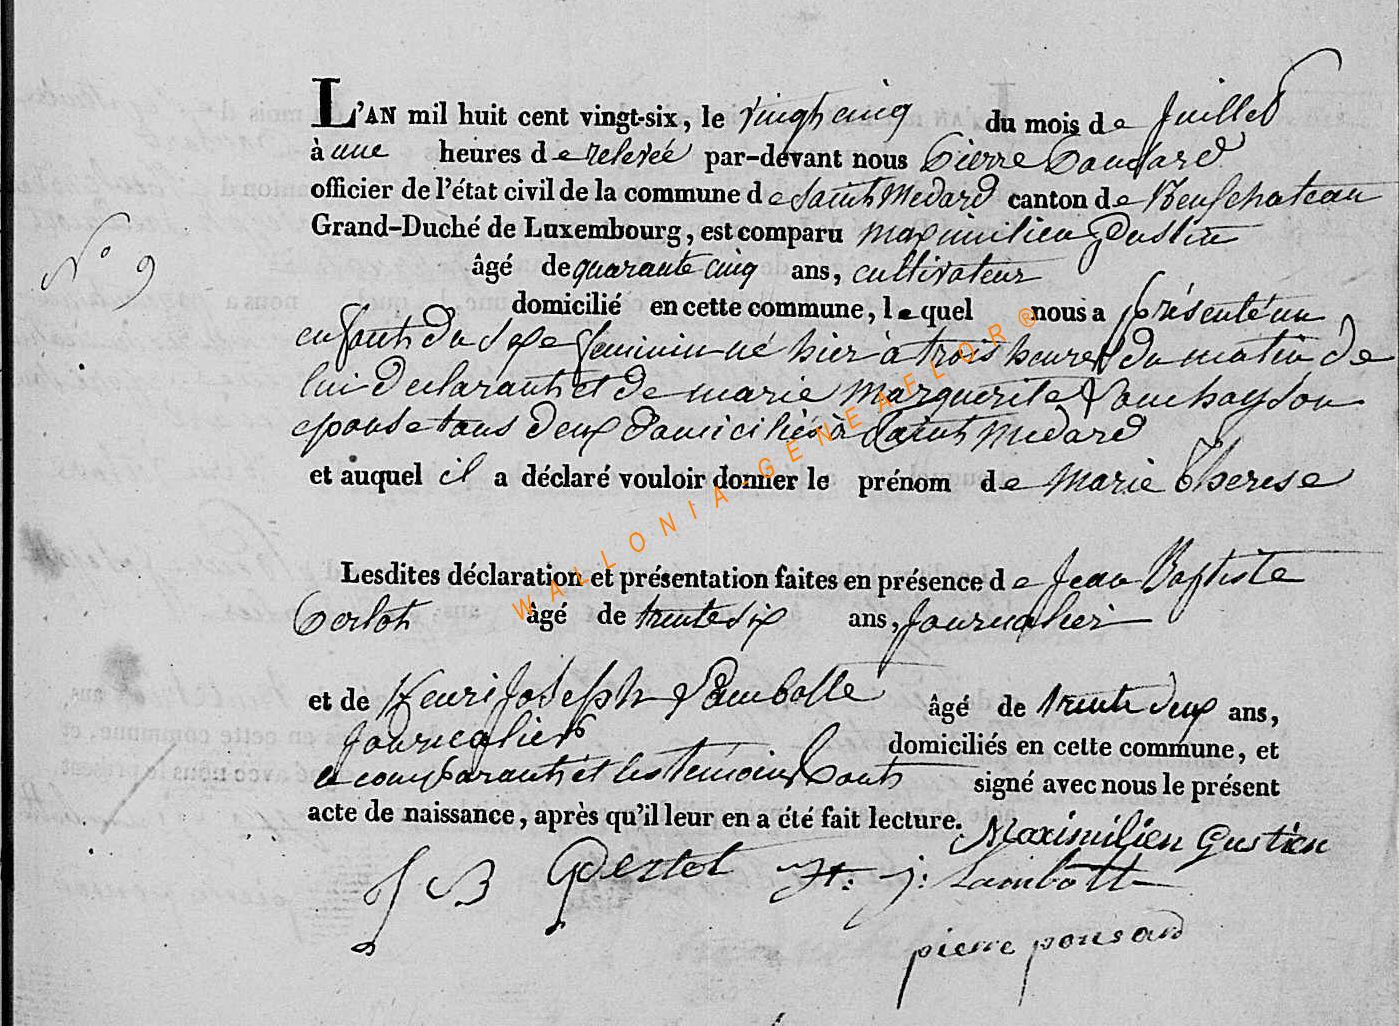 L'AN mil huit cent vingt-six, le vingt cinq du mois de Juillet
à une heures de relevée par-devant nous Pierre Ponsard
officier de l'état civil de la commune de Saint Medard canton de Neufchateau
Grand-Duché de Luxembourg, est comparu Maximilien Gustin
âgé de quarante cinq ans, cultivateur
domicilié en cette commune, lequel nous a présenté un
N° 9
enfant du sexe feminin né hier à trois heures du matin de
lui declarant et de marie Marguerite
epouse tous deux domiciliés à Saint Medard
et auquel il a déclaré vouloir donner le prénom de Marie Therese
Lesdites déclaration et présentation faites en présence de Jean Baptiste
âgé de trente six ans, Journalier
et de Henri Joseph Lambotte âgé de trente deux ans,
Journalier domiciliés en cette commune, et
le comparant et les témoins ont signé avec nous le présent
acte de naissance, après qu'il leur en a été fait lecture. Maximilien Gustin
J B H: j: Lambotte
pierre ponsard
WALLONIA-GENEAFLOR®